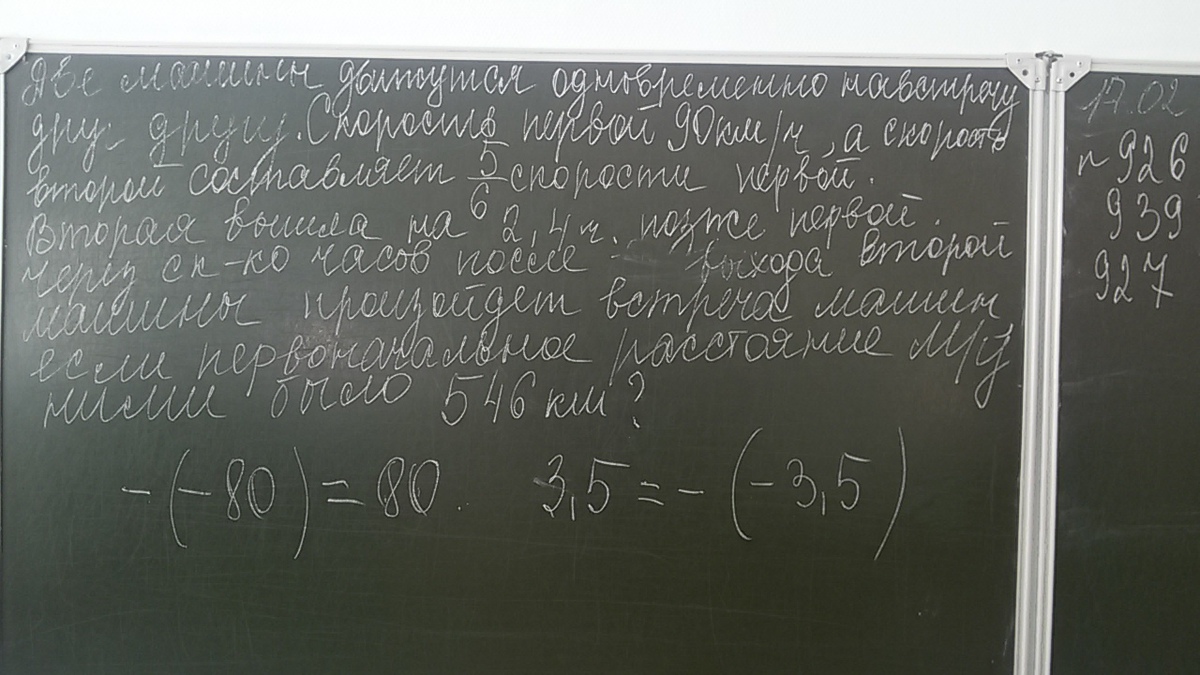 Две машины движутся одновременно навстречу
друг другу. Скорость первой 90 км/ч, а скорость
второй составляет 5/6 скорости первой.
Вторая вышла на 2,4 ч. позже первой.
Через ск-ко часов после выхода второй
машины произойдет встреча машин
если первоначальное расстояние м/у
ними было 546 км?
-(-80) = 80. 3,5 = -(-3,5)
17.02
n 926
939
927